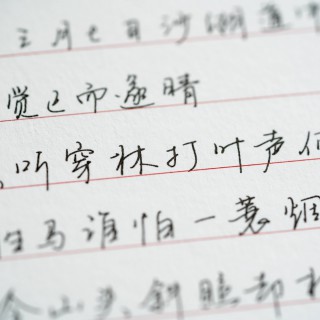 三月七日沙湖道
觉已而遂晴
听穿林打叶声何
胜马谁怕一蓑烟
山头斜照却相